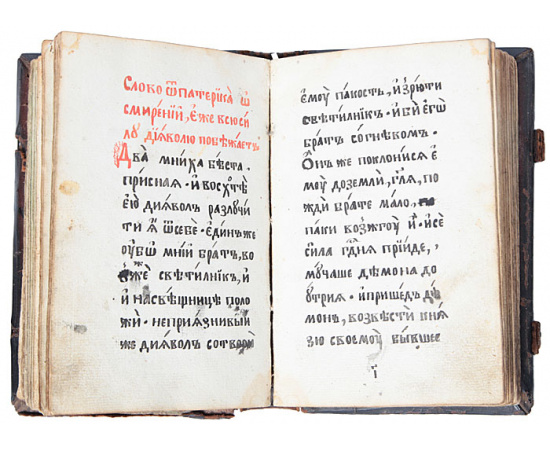 Слово ѿпатерика ѿ
смиренїй, еже всюси
лу дїаволю побѣжаетъ
Два мниха бѣста
присная · и восхотѣ
ею дїаволъ разлучи
ти я ѿсебе · единъ же
оубѡ мнїй братъ, во
жже свѣтилникъ, и
и насвѣщнице поло
жи · неприязнивый
же дїаволъ сотвори
емоу пакость, и зрюти
свѣтилникъ · и би его
братъ согнѣвомъ ·
Онъ же поклонися е
моу доземли, гл҃я, по
жди брате мало,
паки возжгоу й · и се
сила гдⷭ҇ня прїиде,
мучаше демона до
утрия · и пришедъ де
монъ, возвѣсти кня
зю своемоу бывшее